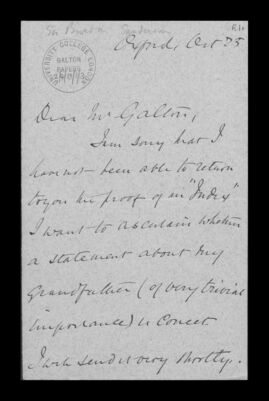 Sir Burdon Sanderson
UNIVERSITY COLLEGE LONDON
GALTON
PAPERS
Oxford, Oct 25
Dear Mr Galton,
I am sorry that I
have not been able to return
to you the proof of an "Index"
I want to ascertain whether
a statement about my
Grandfather (of very trivial
importance) is correct
I will send it very shortly.